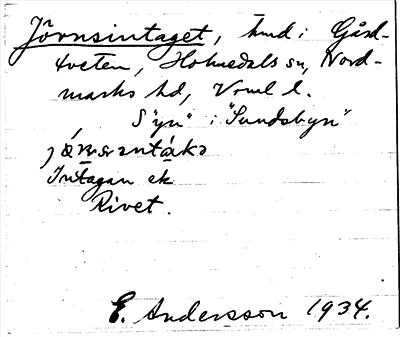 Jörnsintaget, hmd i Gård-
tveten, Holmedals sn, Nord-
marks hd, Vrml l.
Syn i "Sundsbyn"
Intagan ek
Rivet.
E. Andersson 1934.